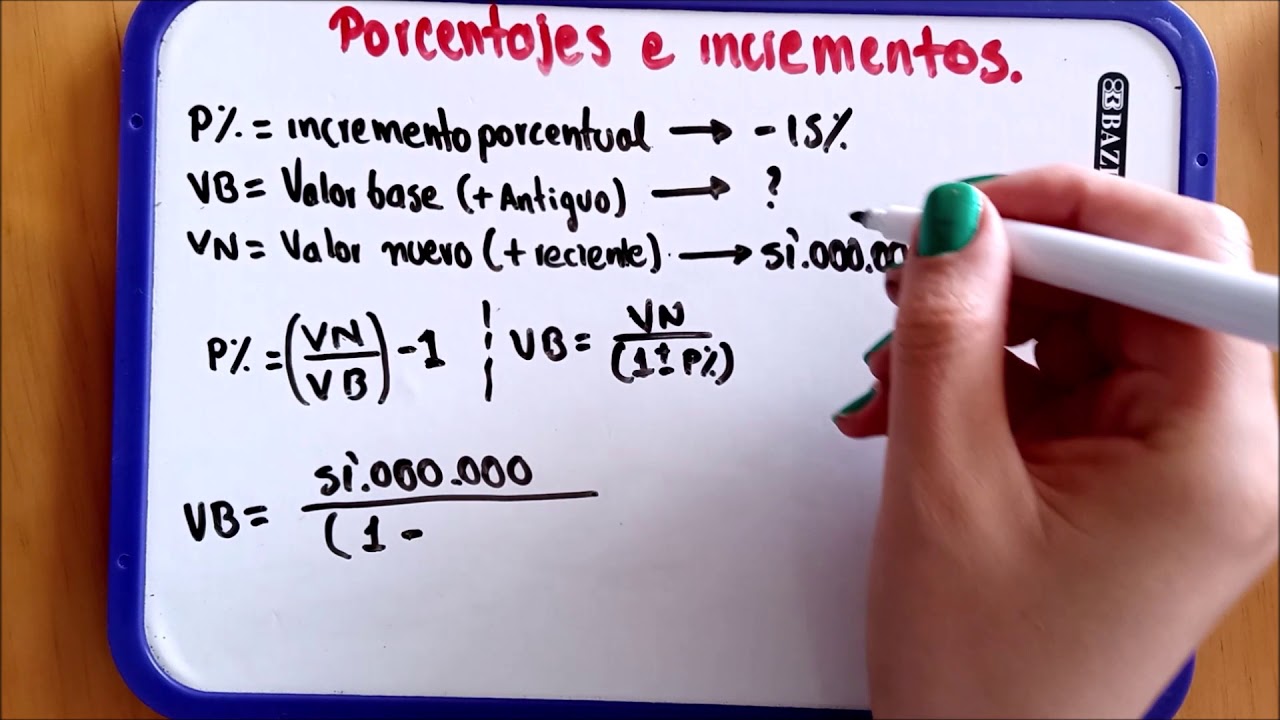 Porcentajes e incrementos.
P% = incremento porcentual → -15%
VB = Valor base (+ Antiguo) → ?
VN = Valor nuevo (+ reciente) →
P% = (VN/VB) - 1 ¦ VB = VN/(1 ± P%)
VB = 51.000.000
(1 -